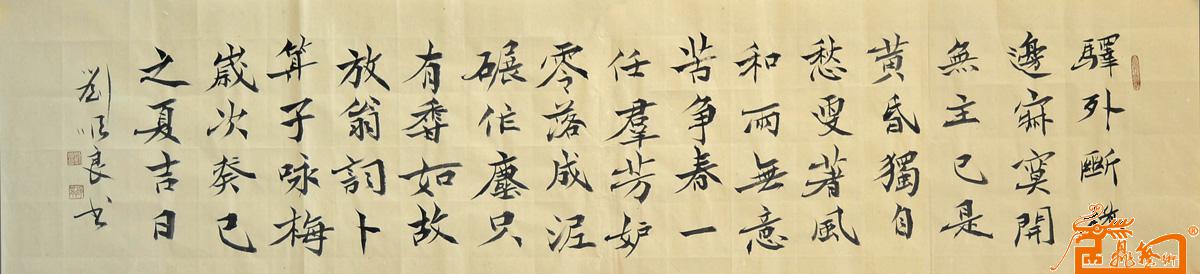 驛外斷橋
邊寂寞開
無主已是
黄昏獨自
愁更著風
和雨無意
苦争春一
任羣芳妒
零落成泥
碾作塵只
有香如故
放翁詞卜
算子咏梅
歲次癸巳
之夏吉日
劉順良书